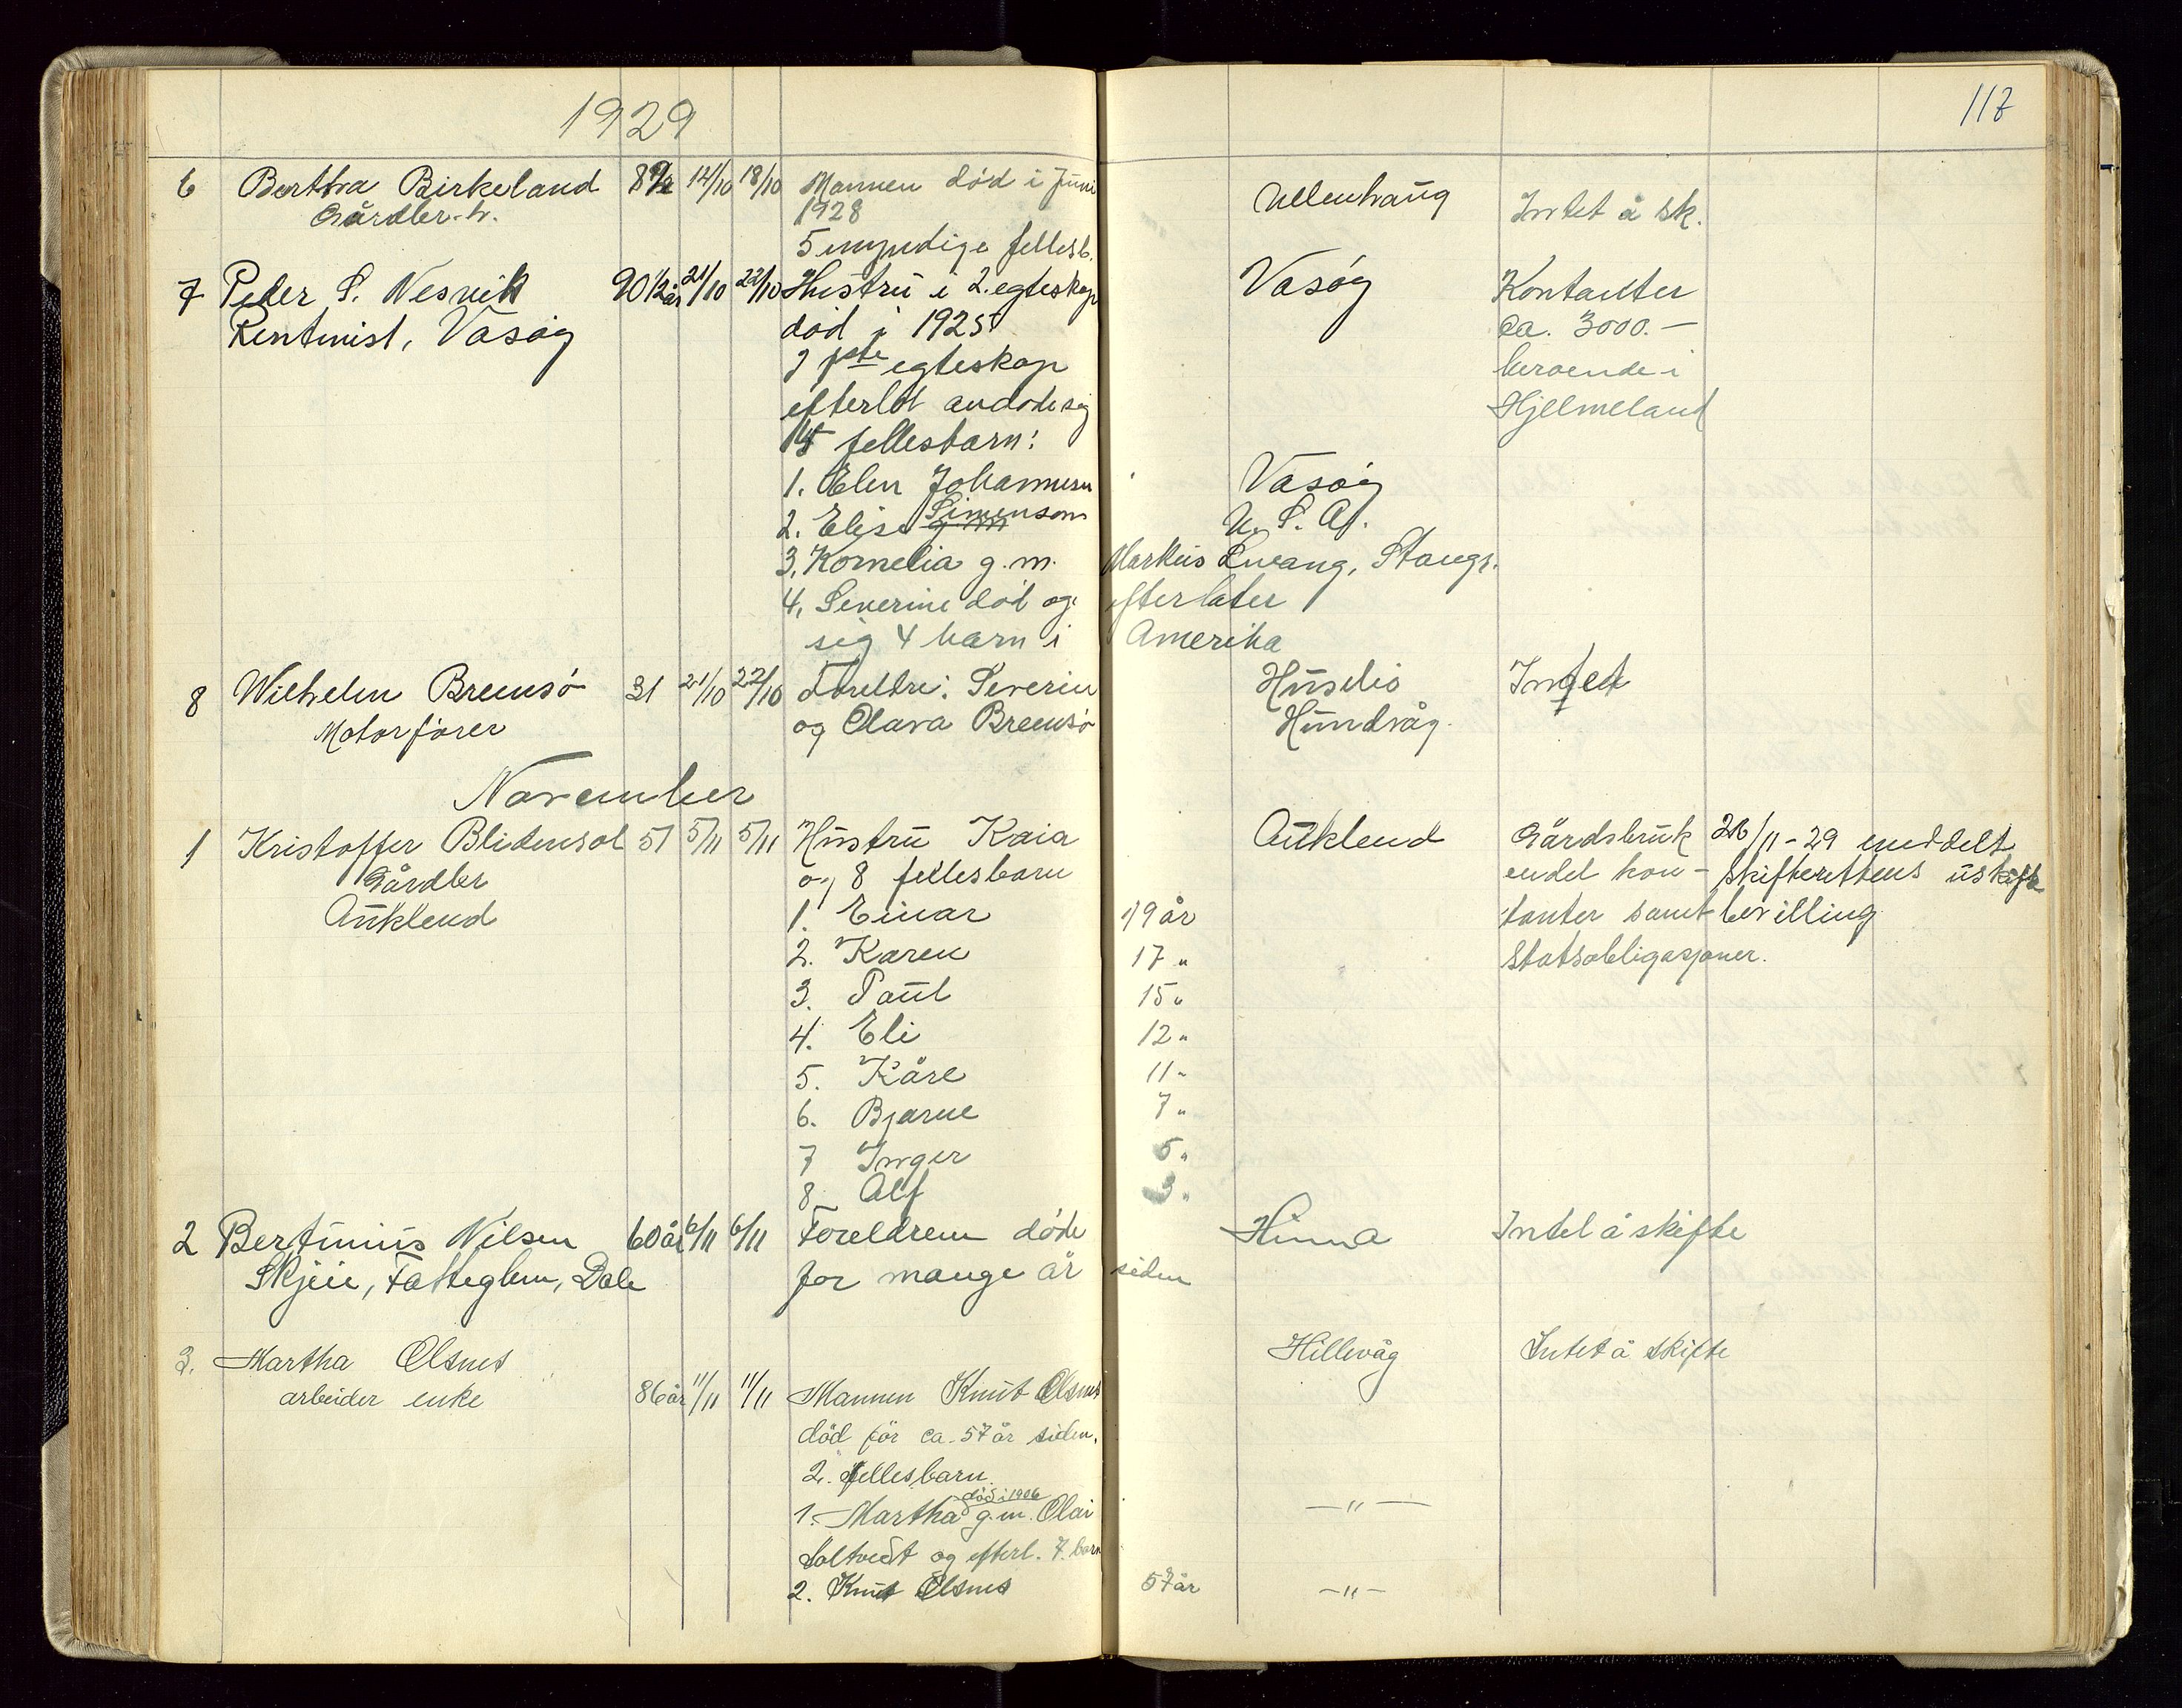 1929
117
6 Bertha Birkeland 14/10 18/10 Mannen död i Juni Ullenhaug Intet å sk.
Gårdbr. h. 1928
5 myndige fellesb.
7 Peder S. Nesvik 90 1/2 år 21/10 22/10 Hustru i 2. egteskap Vasöy Kontanter
Rentenist, Vasöy död i 1925 ca. 3000.—
I 1ste egteskap beroende i
efterlot avdöde sig Hjelmeland
fellesbarn:
1. Elen Johannesen Vasöy
2. Elise Simenson U. S. A.
3. Kornelia g. m. Markus Kvang, Stavgr.
4. Severine död og efterlater
sig 4 barn i Amerika
8 Wilhelm Bremsö 31 21/10 22/10 Foreldre: Severin Huselö Intet
Motorförer og Olava Bremsö Hundvåg.
November
1 Kristoffer Blidensol 51 5/11 5/11 Hustru Kaia Auklend Gårdsbruk 26/11-29 meddelt
Gårdbr og 8 fellesbarn endel kon- skifterettens uskifte
Auklend 1. Einar 19 år tanter samt bevilling
2. Karen 17 " Statsobligasjoner.
3. Paul 15 "
4. Eli 12 "
5. Kåre 11 "
6. Bjarne 7 "
7 Inger 5 "
8 Alf 3 "
2 Bertinius Nilsen 60 år 6/11 6/11 Foreldrene döde Hinna Intet å skifte
Skjeie, Fatteglem, Dale for mange år siden
3. Martha Olsnes Hillevåg Intet å skifte
arbeider enke 86 år 11/11 11/11 Mannen Knut Olsnes
död för ca. 57 år siden.
2. fellesbarn.
död i 1906
1. Martha g.m. Olai — " —
Soltvedt og efterl. 7. barn
2. Knut Olsnes 57 år — " —